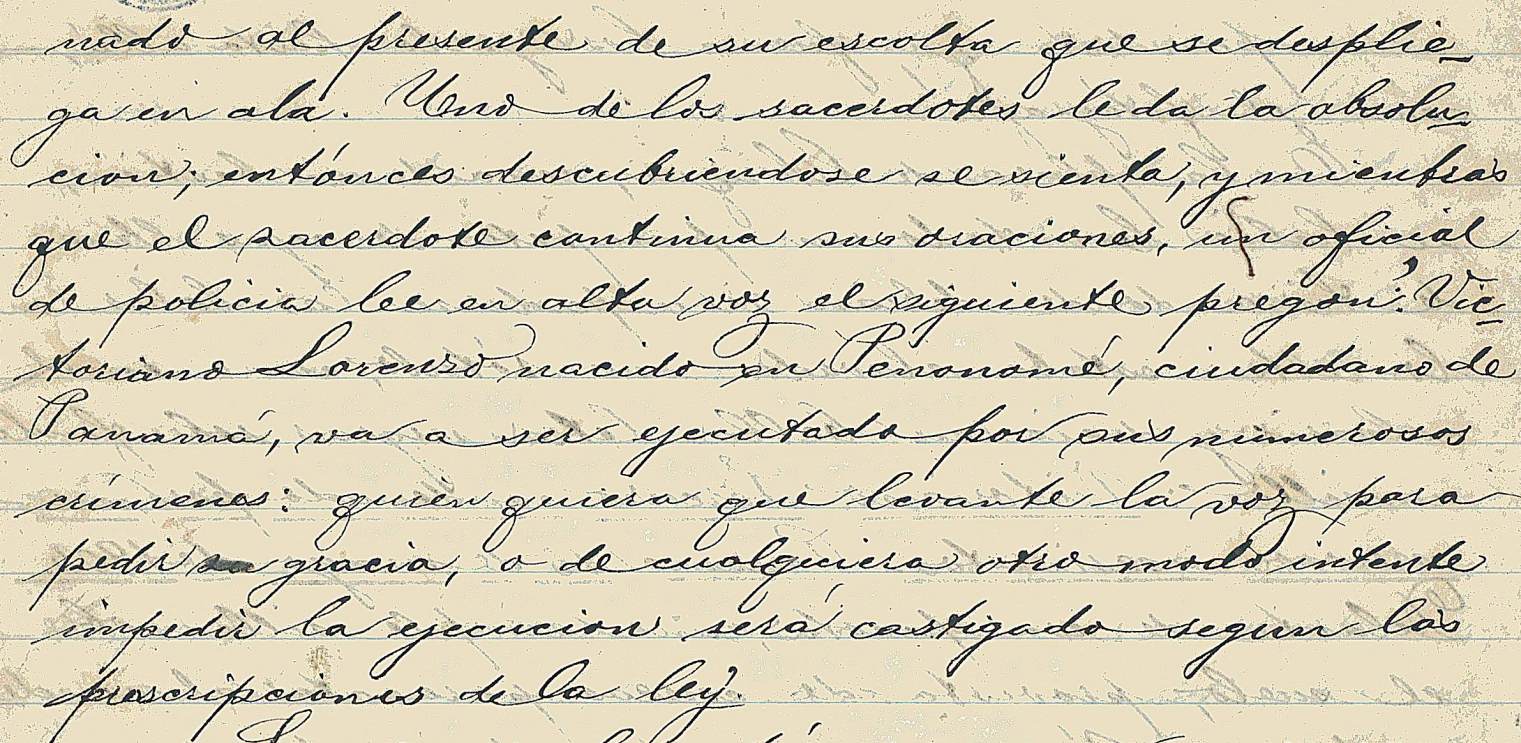 nado al presente de su escolta que se desplie-
ga en ala. Uno de los sacerdotes le da la absolu-
cion; entónces descubriendose se sienta, y mientras
que el sacerdote continua sus oraciones, un oficial
de policia lee en alta voz el siguiente pregon: Vic-
toriano Lorenzo nacido en Penonomé, ciudadano de
Panamá, va a ser ejecutado por sus numerosos
crímenes: quien quiera que levante la voz para
pedir su gracia, o de cualquiera otro modo intente
impedir la ejecucion será castigado segun las
prescripciones de la ley.